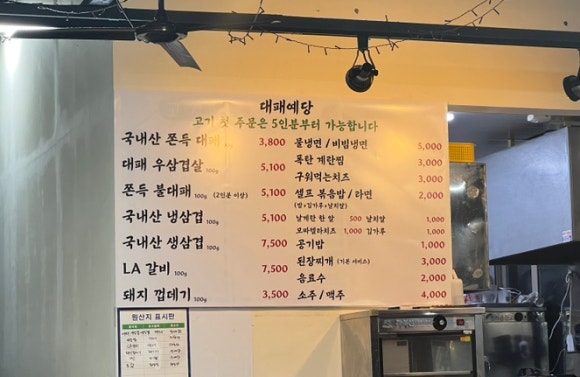 대패예당
고기 첫 주문은 5인분부터 가능합니다
국내산 쫀득 대패 3,800
대패 우삼겹살 100g 5,100
쫀득 불대패 100g (2인분 이상) 5,100
국내산 냉삼겹 100g 5,100
국내산 생삼겹 100g 7,500
LA 갈비 100g 7,500
돼지 껍데기 100g 3,500
물냉면 / 비빔냉면 5,000
폭탄 계란찜 3,000
구워먹는치즈 3,000
셀프 볶음밥 / 라면 2,000
(밥+김가루+날치알)
날계란 한 알 500 날치알 1,000
모짜렐라치즈 1,000 김가루 1,000
공기밥 1,000
된장찌개 (기본 서비스) 3,000
음료수 2,000
소주 / 맥주 4,000
원산지 표시판